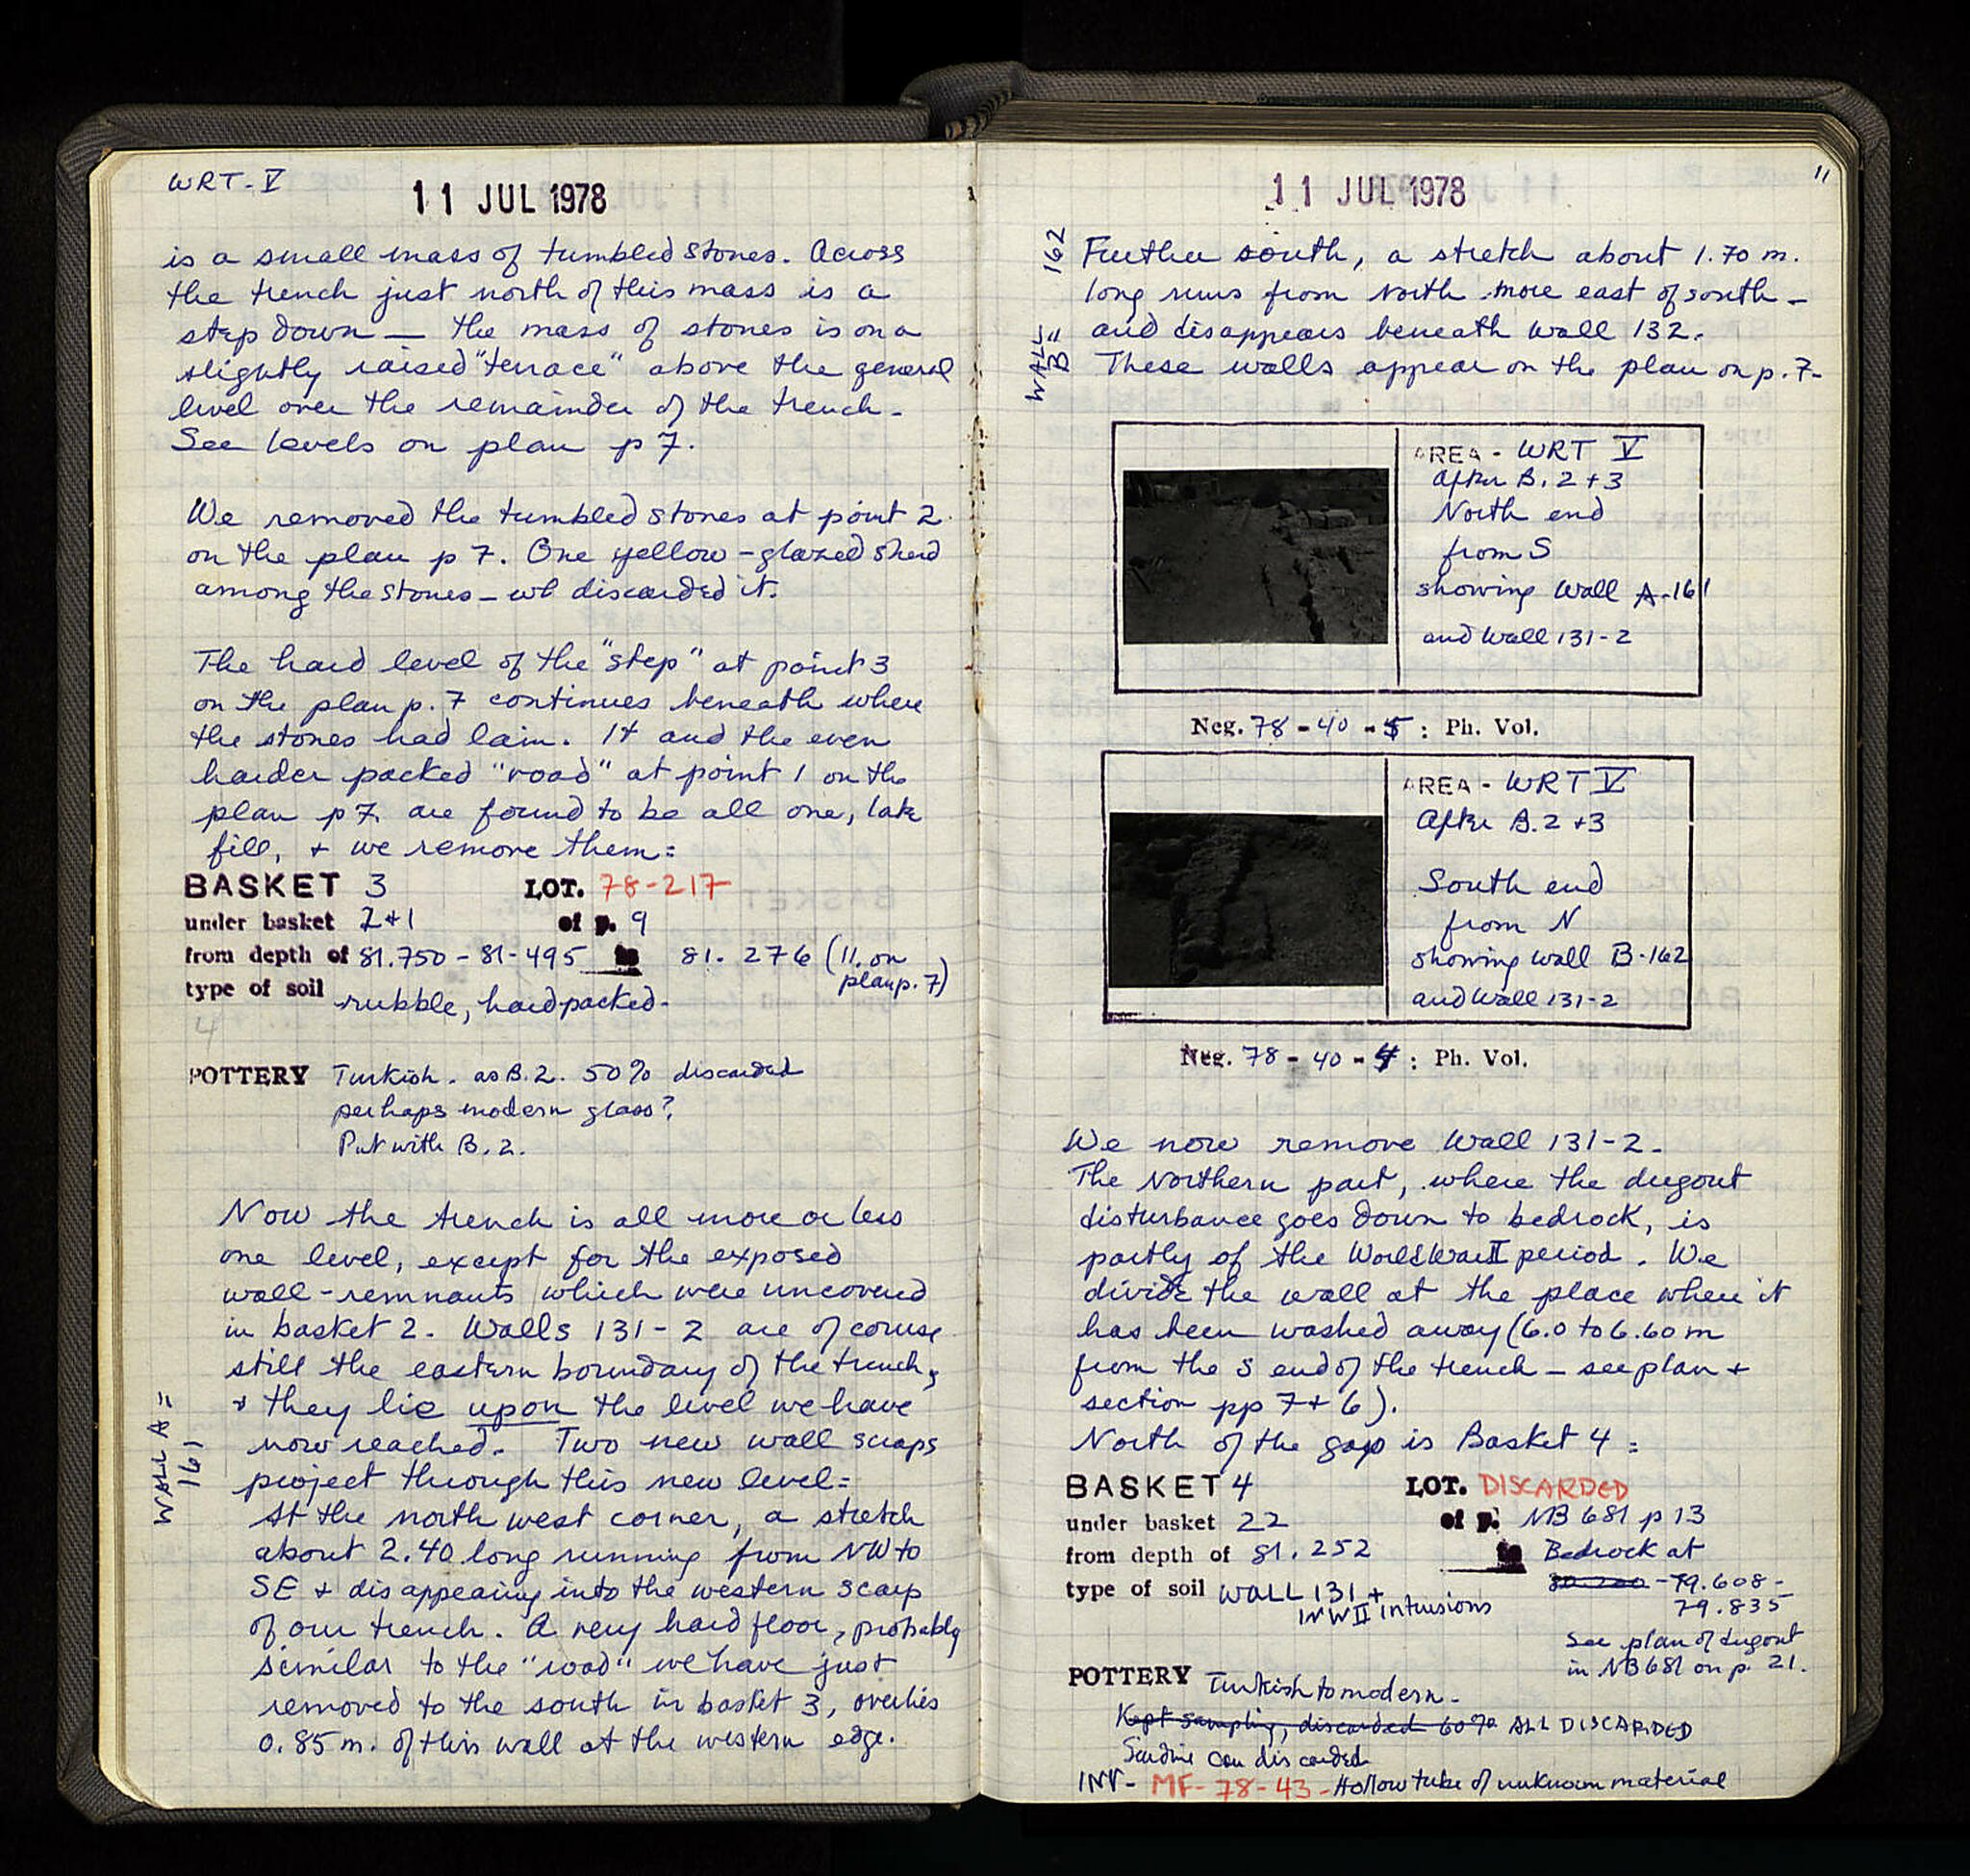 WRT-V
11 JUL 1978
is a small mass of tumbled stones. Across
the trench just north of this mass is a
step down — the mass of stones is on a
slightly raised "terrace" above the general
level over the remainder of the trench.
See levels on plan p 7.
We removed the tumbled stones at point 2
on the plan p 7. One yellow-glazed sherd
among the stones - we discarded it.
The hard level of the "step" at point 3
on the plan p. 7 continues beneath where
the stones had lain. It and the even
harder packed "road" at point 1 on the
plan p 7. are found to be all one, late
fill, + we remove them:
BASKET 3 LOT. 78-217
under basket 2+1 of p. 9
from depth of 81.750 - 81-495 to 81.276 (11. on
plan p. 7)
type of soil rubble, hard-packed.
4
POTTERY Turkish. as B.2. 50% discarded
perhaps modern glass?
Put with B.2.
Now the trench is all more or less
one level, except for the exposed
wall-remnants which were uncovered
in basket 2. Walls 131-2 are of course
still the eastern boundary of the trench,
+ they lie upon the level we have
now reached. Two new wall scraps
project through this new level:
WALL A =
161
At the north west corner, a stretch
about 2.40 long running from NW to
SE + disappearing into the western scarp
of our trench. A very hard floor, probably
similar to the "road" we have just
removed to the south in basket 3, overlies
0.85 m. of this wall at the western edge.
11 JUL 1978
11
WALL
B =
162
Further south, a stretch about 1.70 m.
long runs from north more east of south -
and disappears beneath wall 132.
These walls appear on the plan on p. 7-
AREA - WRT V
After B. 2 + 3
North end
from S
showing Wall A-161
and Wall 131-2
Neg. 78-40-5 : Ph. Vol.
AREA - WRT V
After B. 2 + 3
South end
from N
showing wall B-162
and Wall 131-2
Neg. 78-40-4 : Ph. Vol.
We now remove Wall 131-2.
The Northern part, where the dugout
disturbance goes down to bedrock, is
partly of the World War II period. We
divide the wall at the place where it
has been washed away (6.0 to 6.60 m
from the S end of the trench - see plan +
section pp 7 + 6).
North of the gap is Basket 4 :
BASKET 4 LOT. DISCARDED
under basket 22 of p. NB 681 p 13
from depth of 81.252 to Bedrock at
80.200 - 79.608 -
79.835
type of soil WALL 131 +
WW II intrusions
See plan of dugout
in NB 681 on p. 21.
POTTERY Turkish to modern.
Kept sampling, discarded 60% ALL DISCARDED
Sardine can discarded
INV- MF-78-43 - Hollow tube of unknown material